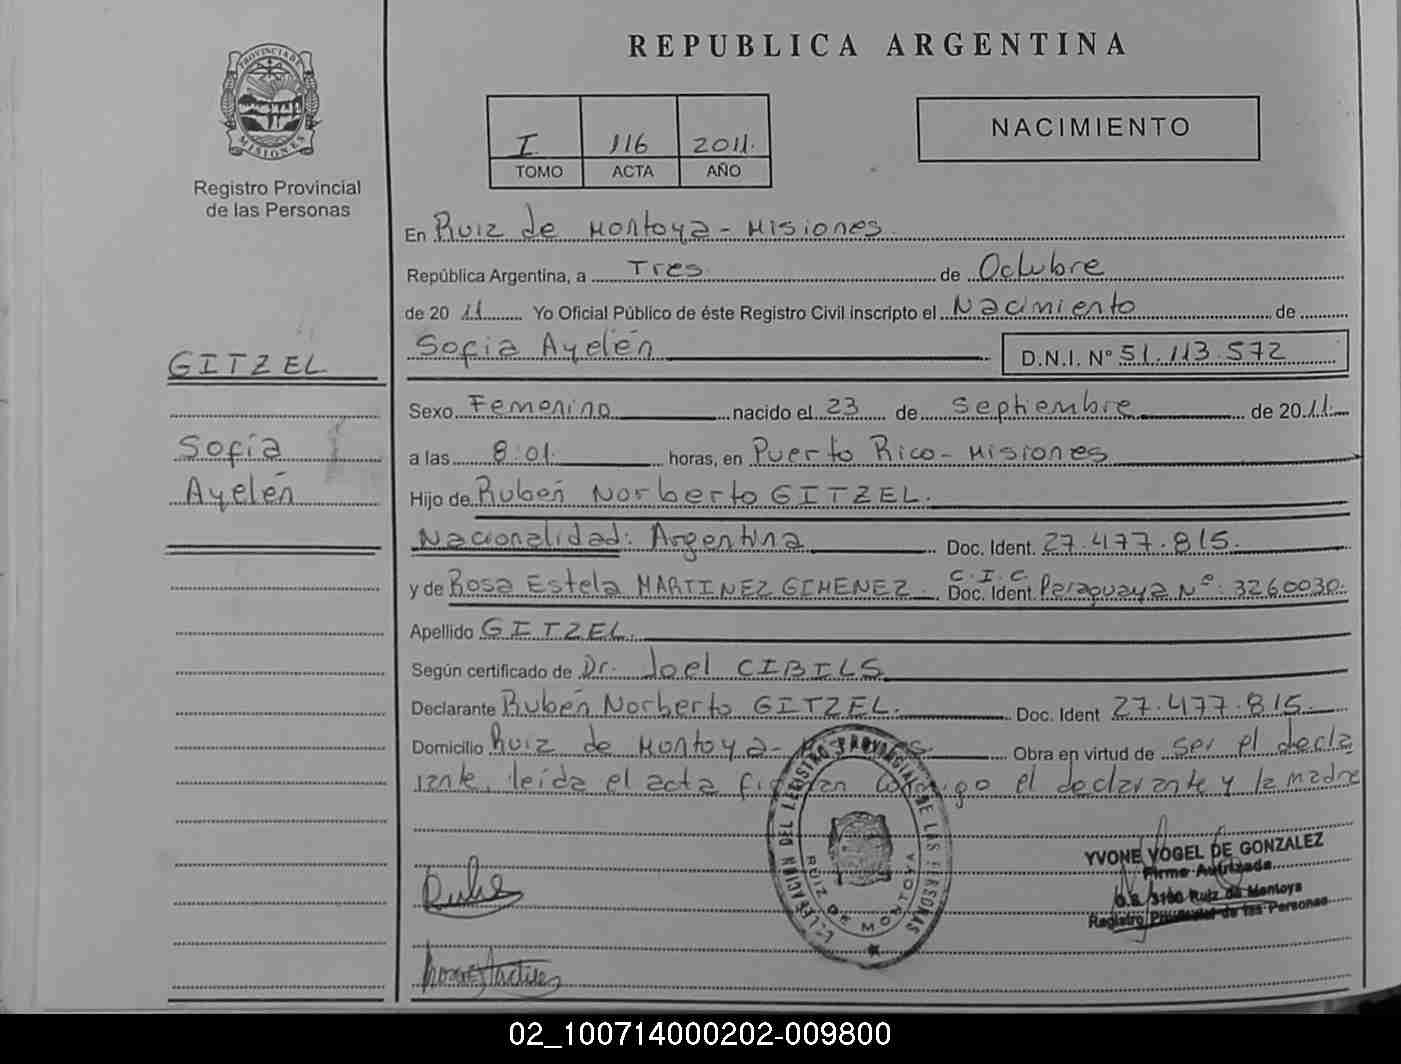 PROVINCIA DE
MISIONES
Registro Provincial
de las Personas
GITZEL
Sofía
Ayelén
REPUBLICA ARGENTINA
I 116 2011.
TOMO ACTA AÑO
NACIMIENTO
En Ruiz de Montoya - Misiones.
República Argentina, a Tres de Octubre
de 20 11 Yo Oficial Público de éste Registro Civil inscripto el Nacimiento de
Sofia Ayelén D.N.I. N° 51.113.572
Sexo Femenino nacido el 23 de Septiembre de 20 11.
a las 8:01. horas, en Puerto Rico - Misiones
Hijo de Rubén Norberto GITZEL.
Nacionalidad: Argentina Doc. Ident. 27.477.815.
y de Rosa Estela MARTINEZ GIMENEZ. C.I.C. Doc. Ident. Paraguaya Nº: 3260030.
Apellido GITZEL.
Según certificado de Dr. Joel CIBILS
Declarante Rubén Norberto GITZEL. Doc. Ident 27.477.815.
Domicilio Ruiz de Montoya - Obra en virtud de ser el decla
rante, leída el acta firman conmigo el declarante y la madre
DEL REGISTRO PROVINCIAL DE LAS PERSONAS
RUIZ DE MONTOYA
YVONE VOGEL DE GONZALEZ
Firma Autorizada
3190 Ruiz de Montoya
Registro Provincial de las Personas
02_100714000202-009800